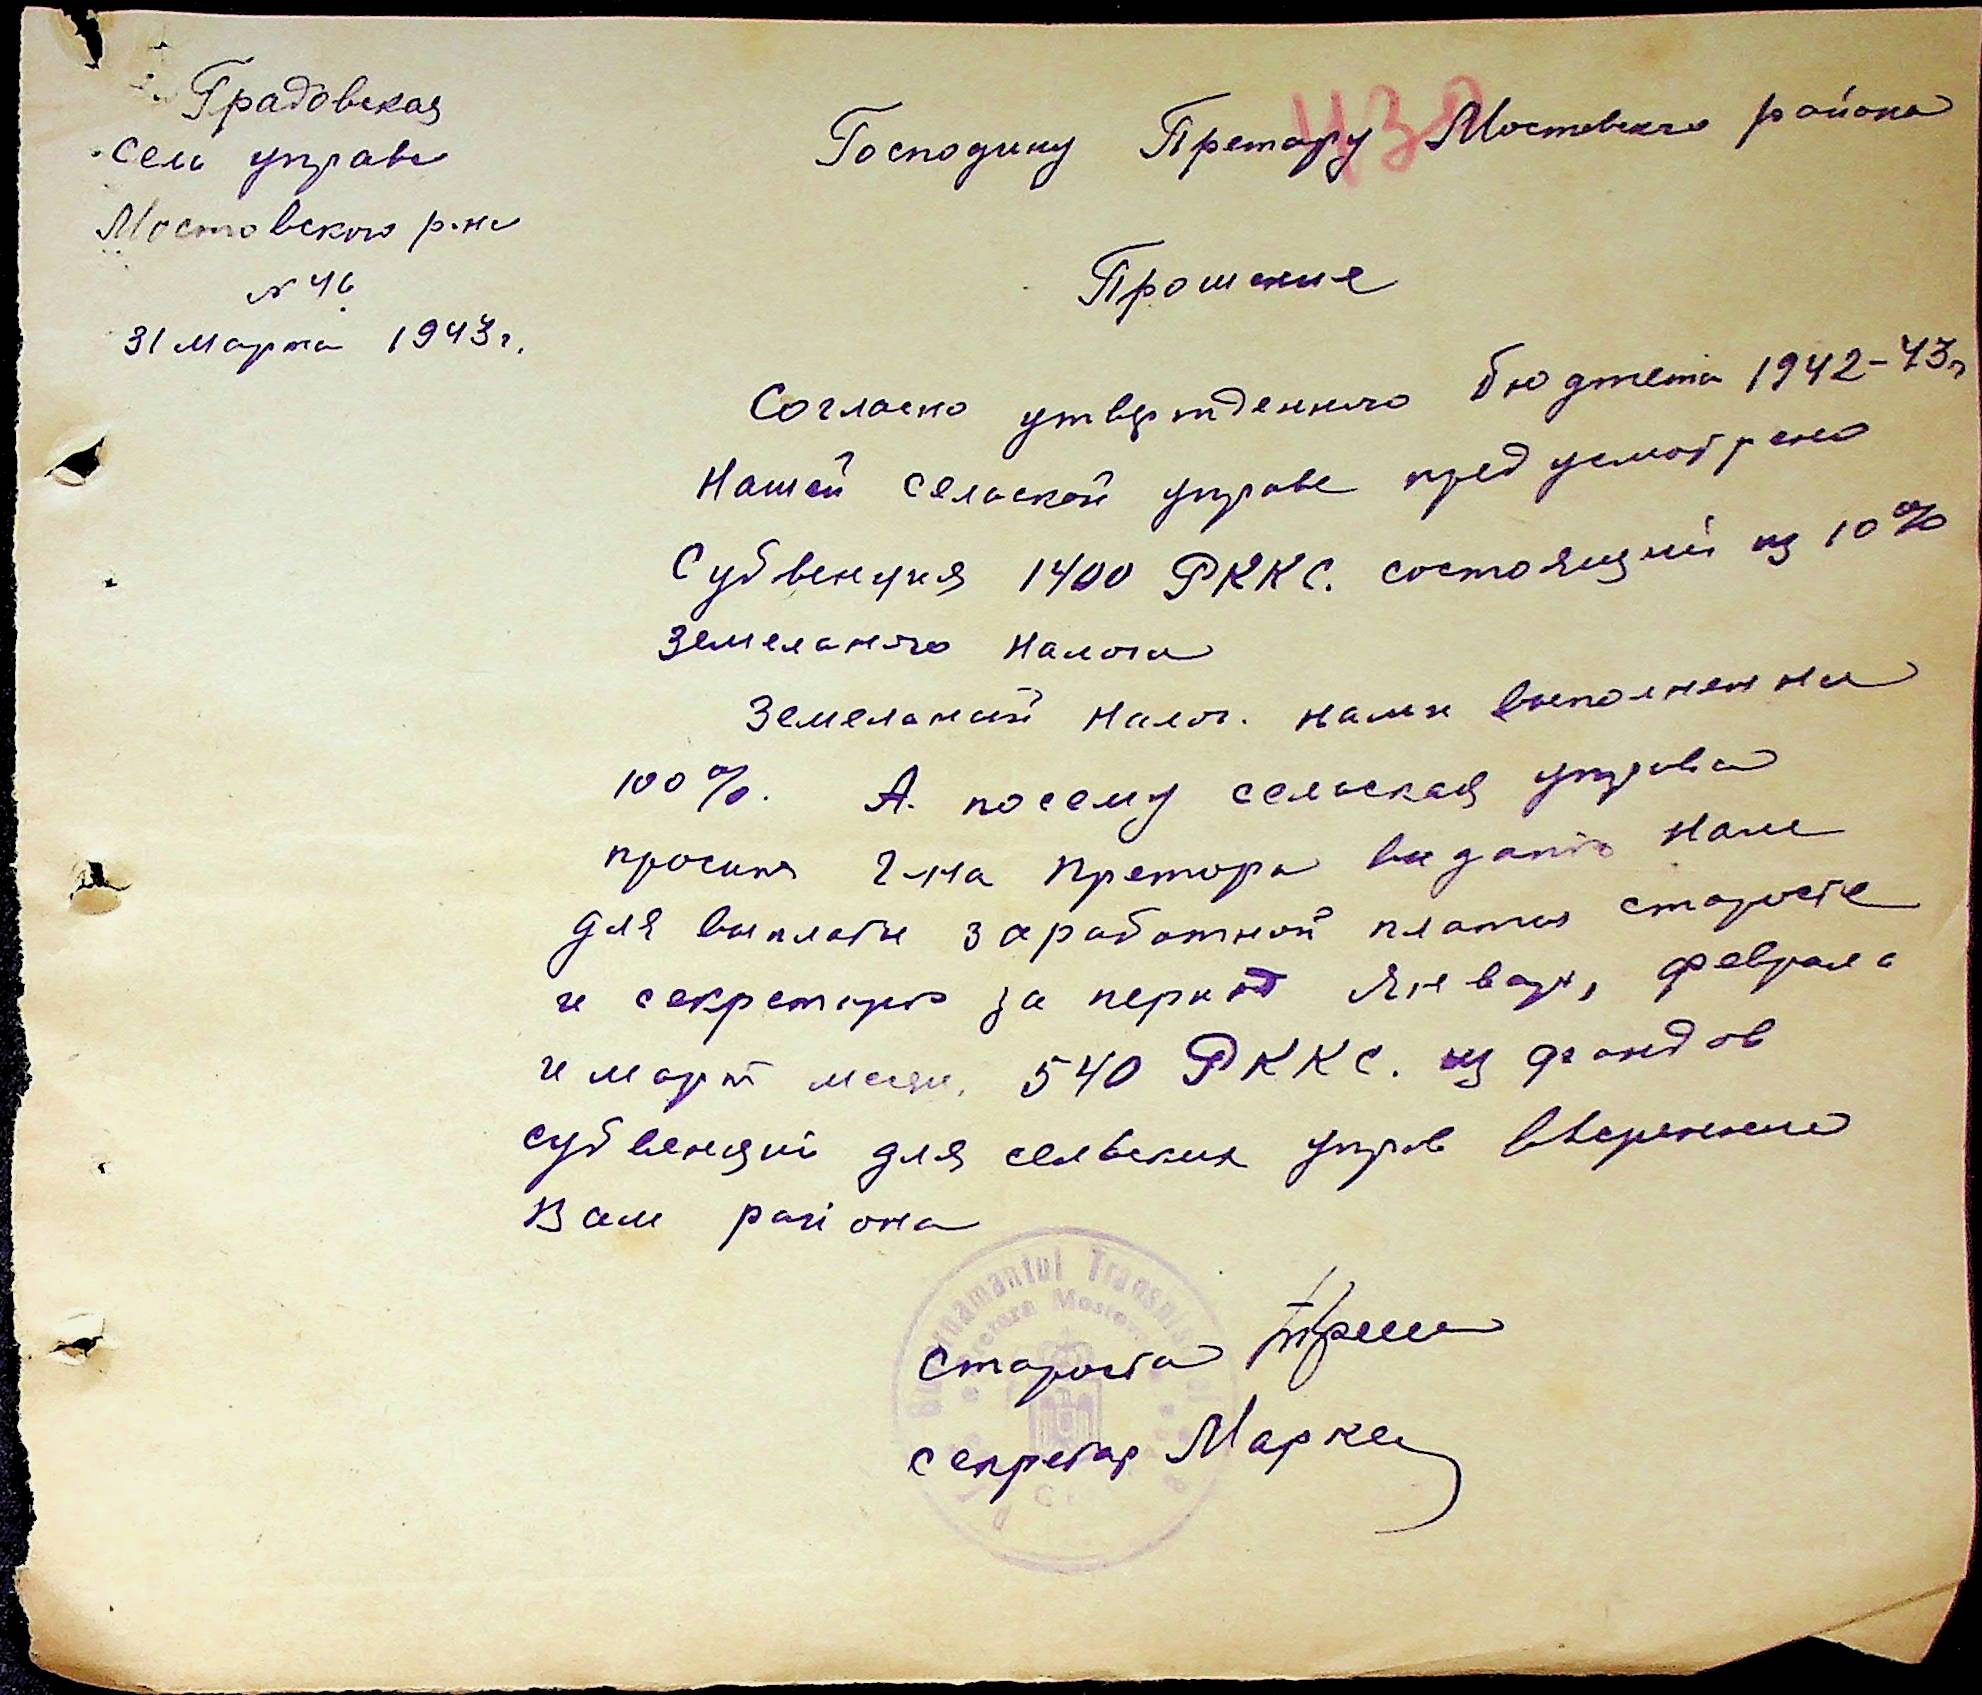 Градовская
Сель управа
Мостовского р-на
№ 46
31 марта 1943 г.
438
Господину Претору Мостовского района
Прошение
Согласно утвержденного бюджета 1942-43 г
Нашей сельской управе предусмотрено
Субвенция 1400 РККС. состоящий из 10%
земельного налога
Земельный налог. нами выполненна
100%. А. посему сельская управа
просит г-на Претора выдать нам
для выплаты заработной платы старосте
и секретарю за период Январ, февраль
и март месяц. 540 РККС. из фондов
субвенций для сельских управ вверенного
Вам района
Guvernamantul Transnistriei
Староста
Секретар Марке